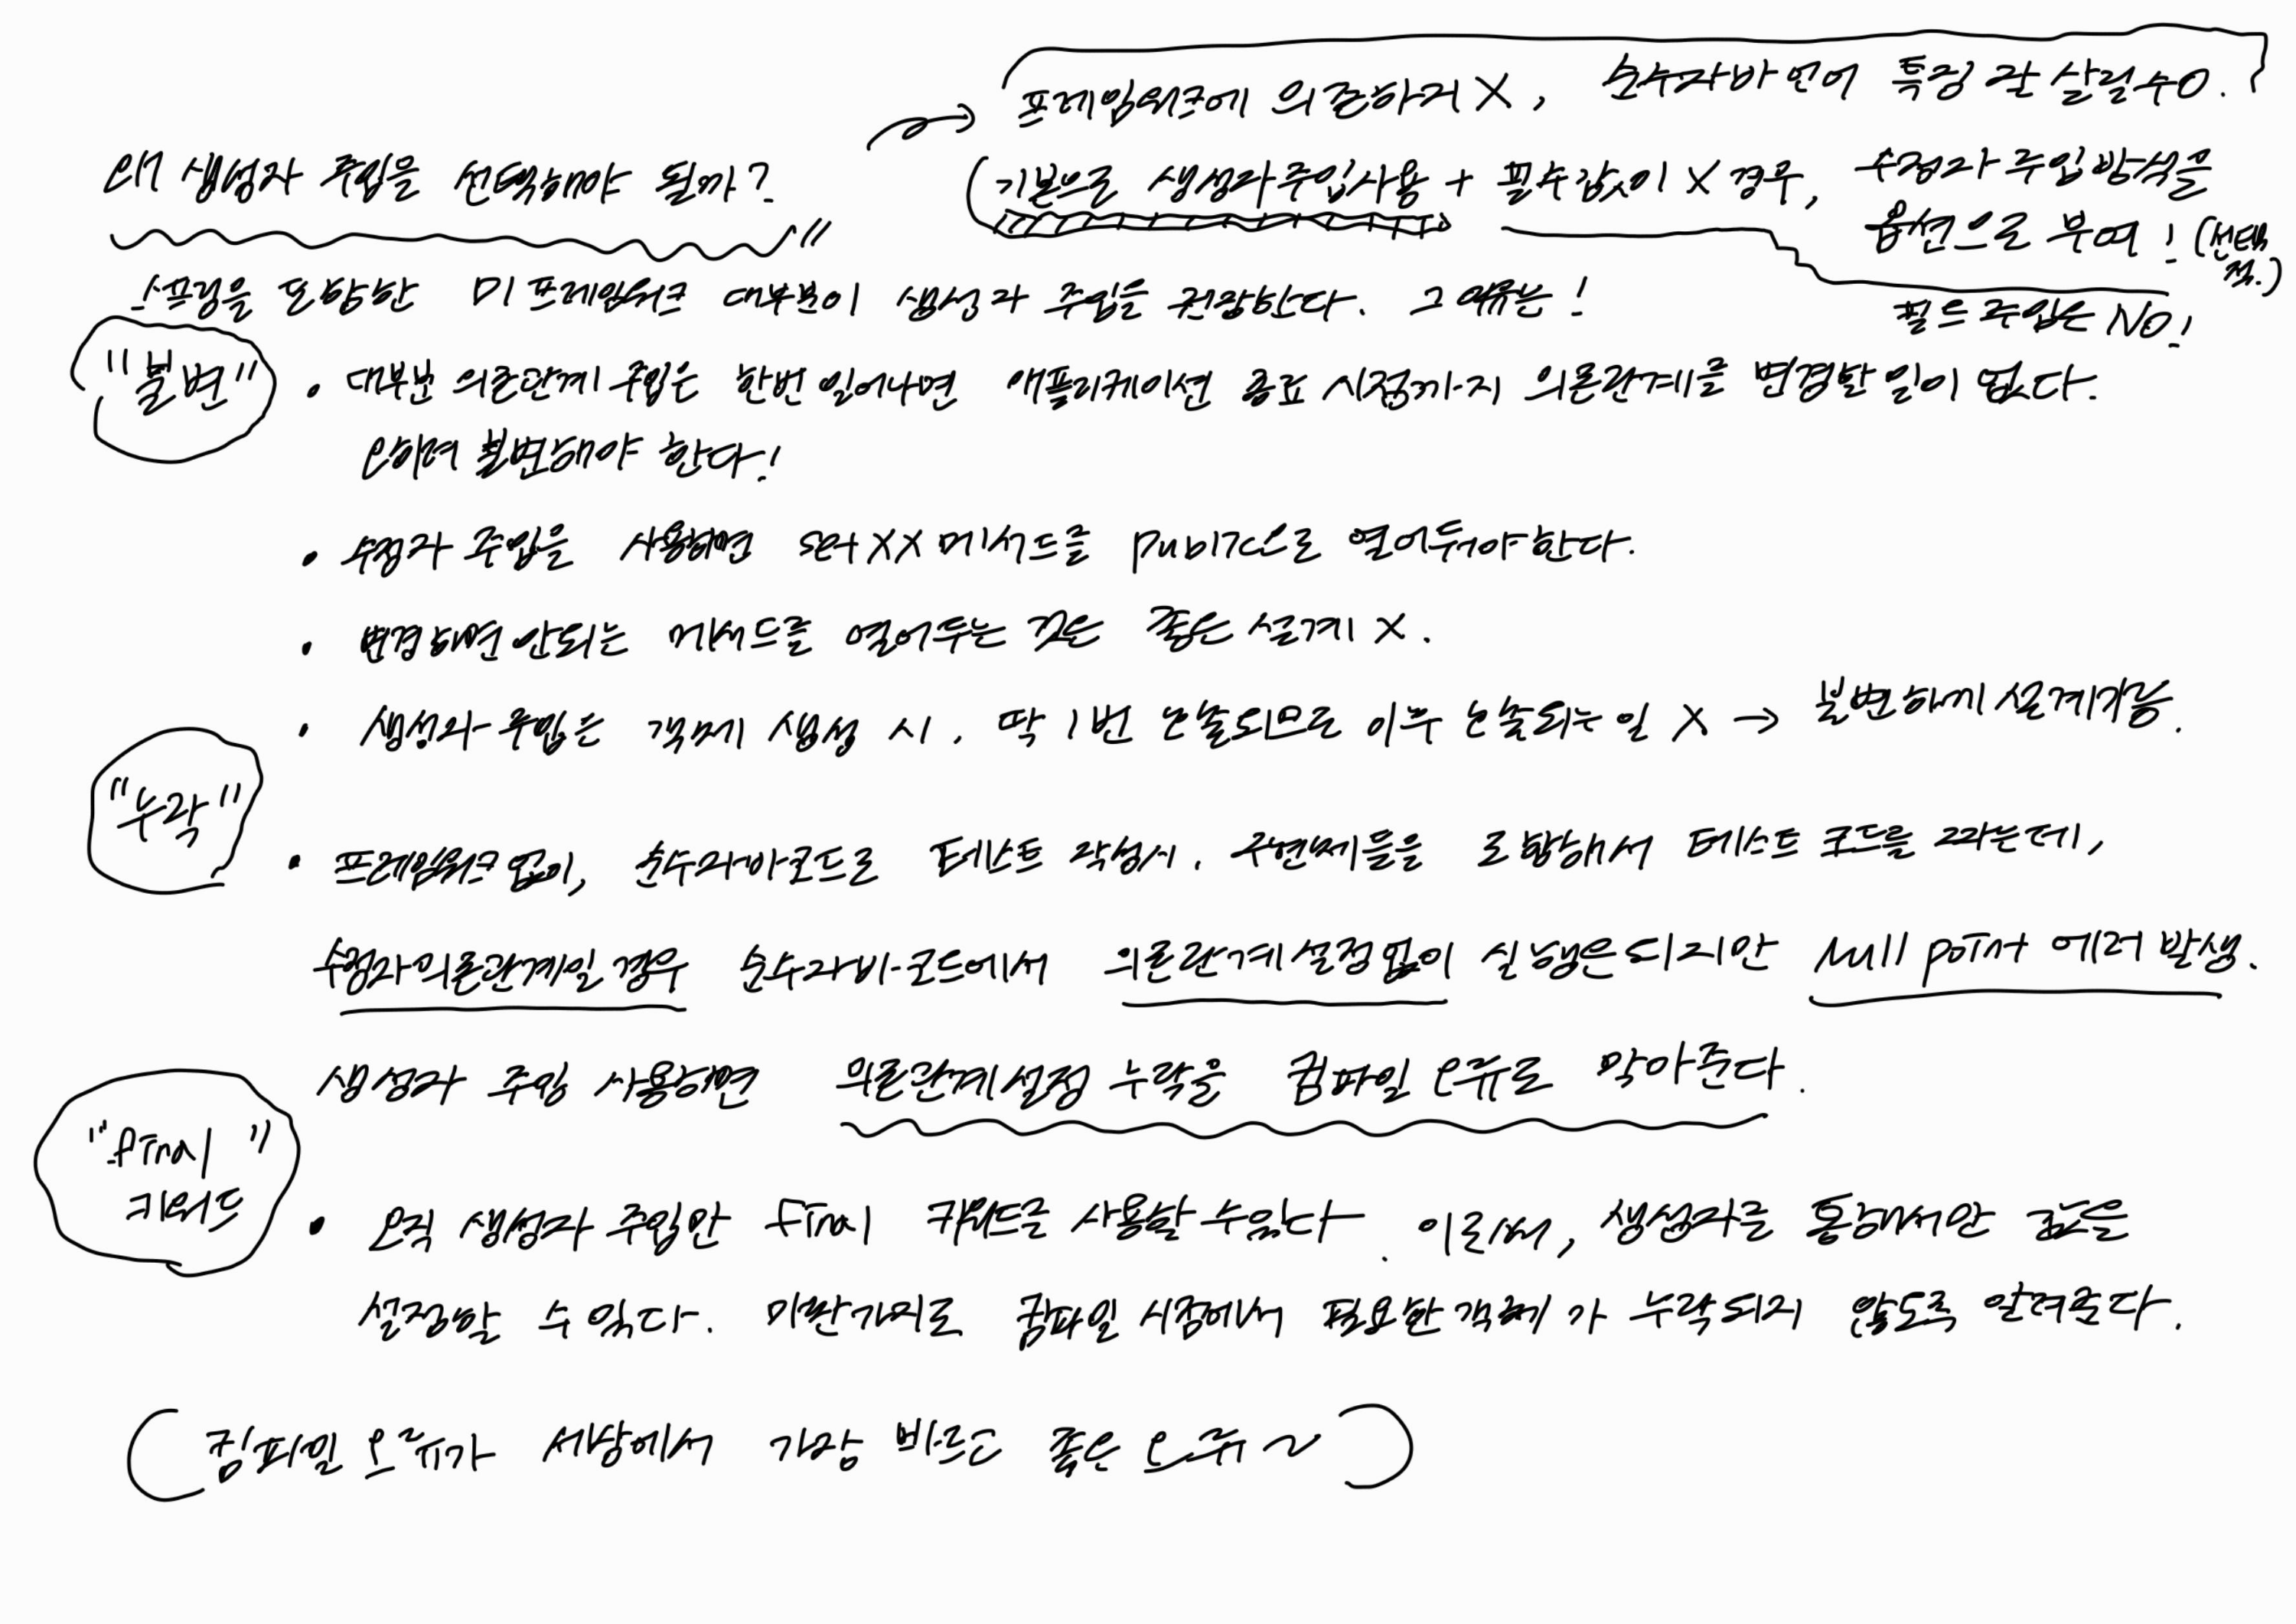 왜 생성자 주입을 선택해야 될까?
프레임워크에 의존하지 X, 순수자바 언어 특징 잘 살릴 수 O.
(기본으로 생성자 주입 사용 + 필수 값이 X 경우, 수정자 주입 방식을
옵션으로 부여! (선택적.)
필드 주입은 NO!
스프링을 포함한 DI 프레임워크 대부분이 생성자 주입을 권장한다. 그 이유는!
"불변"
• 대부분 의존관계 주입은 한번 일어나면 애플리케이션 종료 시점까지 의존관계를 변경할 일이 없다.
오히려 불변해야 한다!
• 수정자 주입을 사용하면 setXX 메서드를 public으로 열어둬야한다.
• 변경하면 안되는 메서드를 열어두는 것은 좋은 설계 X.
• 생성자 주입은 객체 생성 시, 딱 1번 호출되므로 이후 호출되는 일 X → 불변하게 설계가능.
"누락"
• 프레임워크 없이, 순수자바코드로 테스트 작성시, 구현체들을 조합해서 테스트 코드를 짜는데,
수정자의존관계일 경우 순수자바코드에서 의존관계설정없이 실행은되지만 Null point 에러 발생.
생성자 주입 사용하면 의존관계설정 누락을 컴파일 오류로 막아준다.
"final"
키워드
• 오직 생성자 주입만 final 키워드를 사용할 수 있다. 이로써, 생성자를 통해서만 값을
설정할 수 있다. 마찬가지로 컴파일 시점에서 필요한 객체가 누락되지 않도록 알려준다.
(컴파일 오류가 세상에서 가장 빠르고 좋은 오류~)